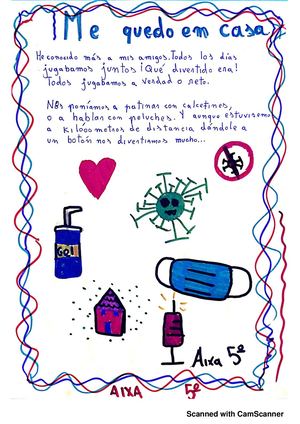 Me quedo en casa
He conocido más a mis amigos. Todos los días
jugabamos juntos ¡Qué divertido era!
Todos jugabamos a verdad o reto.
Nos poníamos a patinar con calcetines,
o a hablar con peluches. Y aunque estuviesemos
a kilocometros de distancia dándole a
un botón nos divertimos mucho...
GOL
Aixa 5º
AIXA 5º
Scanned with CamScanner